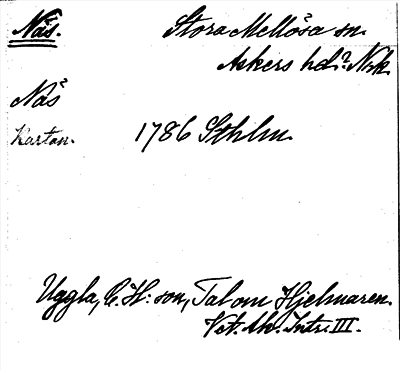 Näs. Stora Mellösa sn.
Askers hd. Nrk.
Näs
Kartan. 1786 Sthlm.
Uggla, C. H:son, Tal om Hjelmaren.
Vet. Ak. Intr. III.